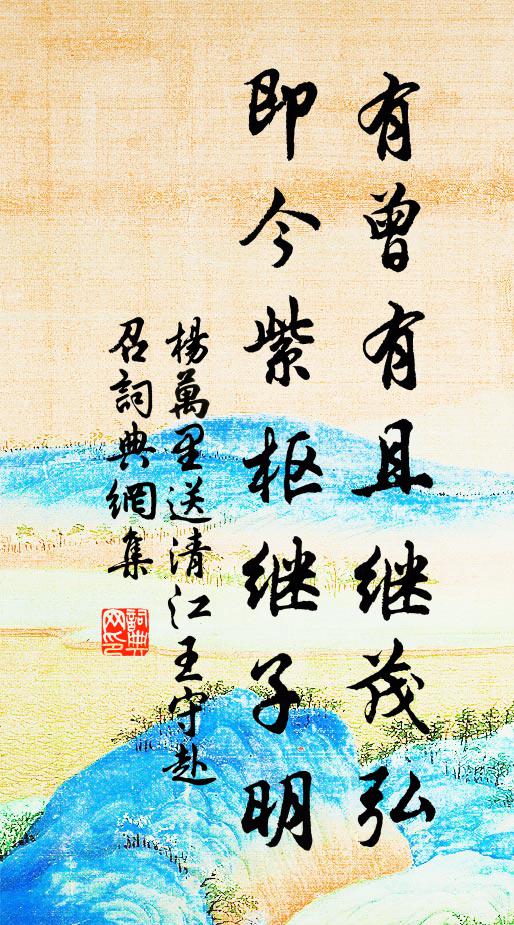 有曾有且继茂弘
即今紫枢继子明
楊萬里送清江王守赴
召詞典網集
詞典
网印